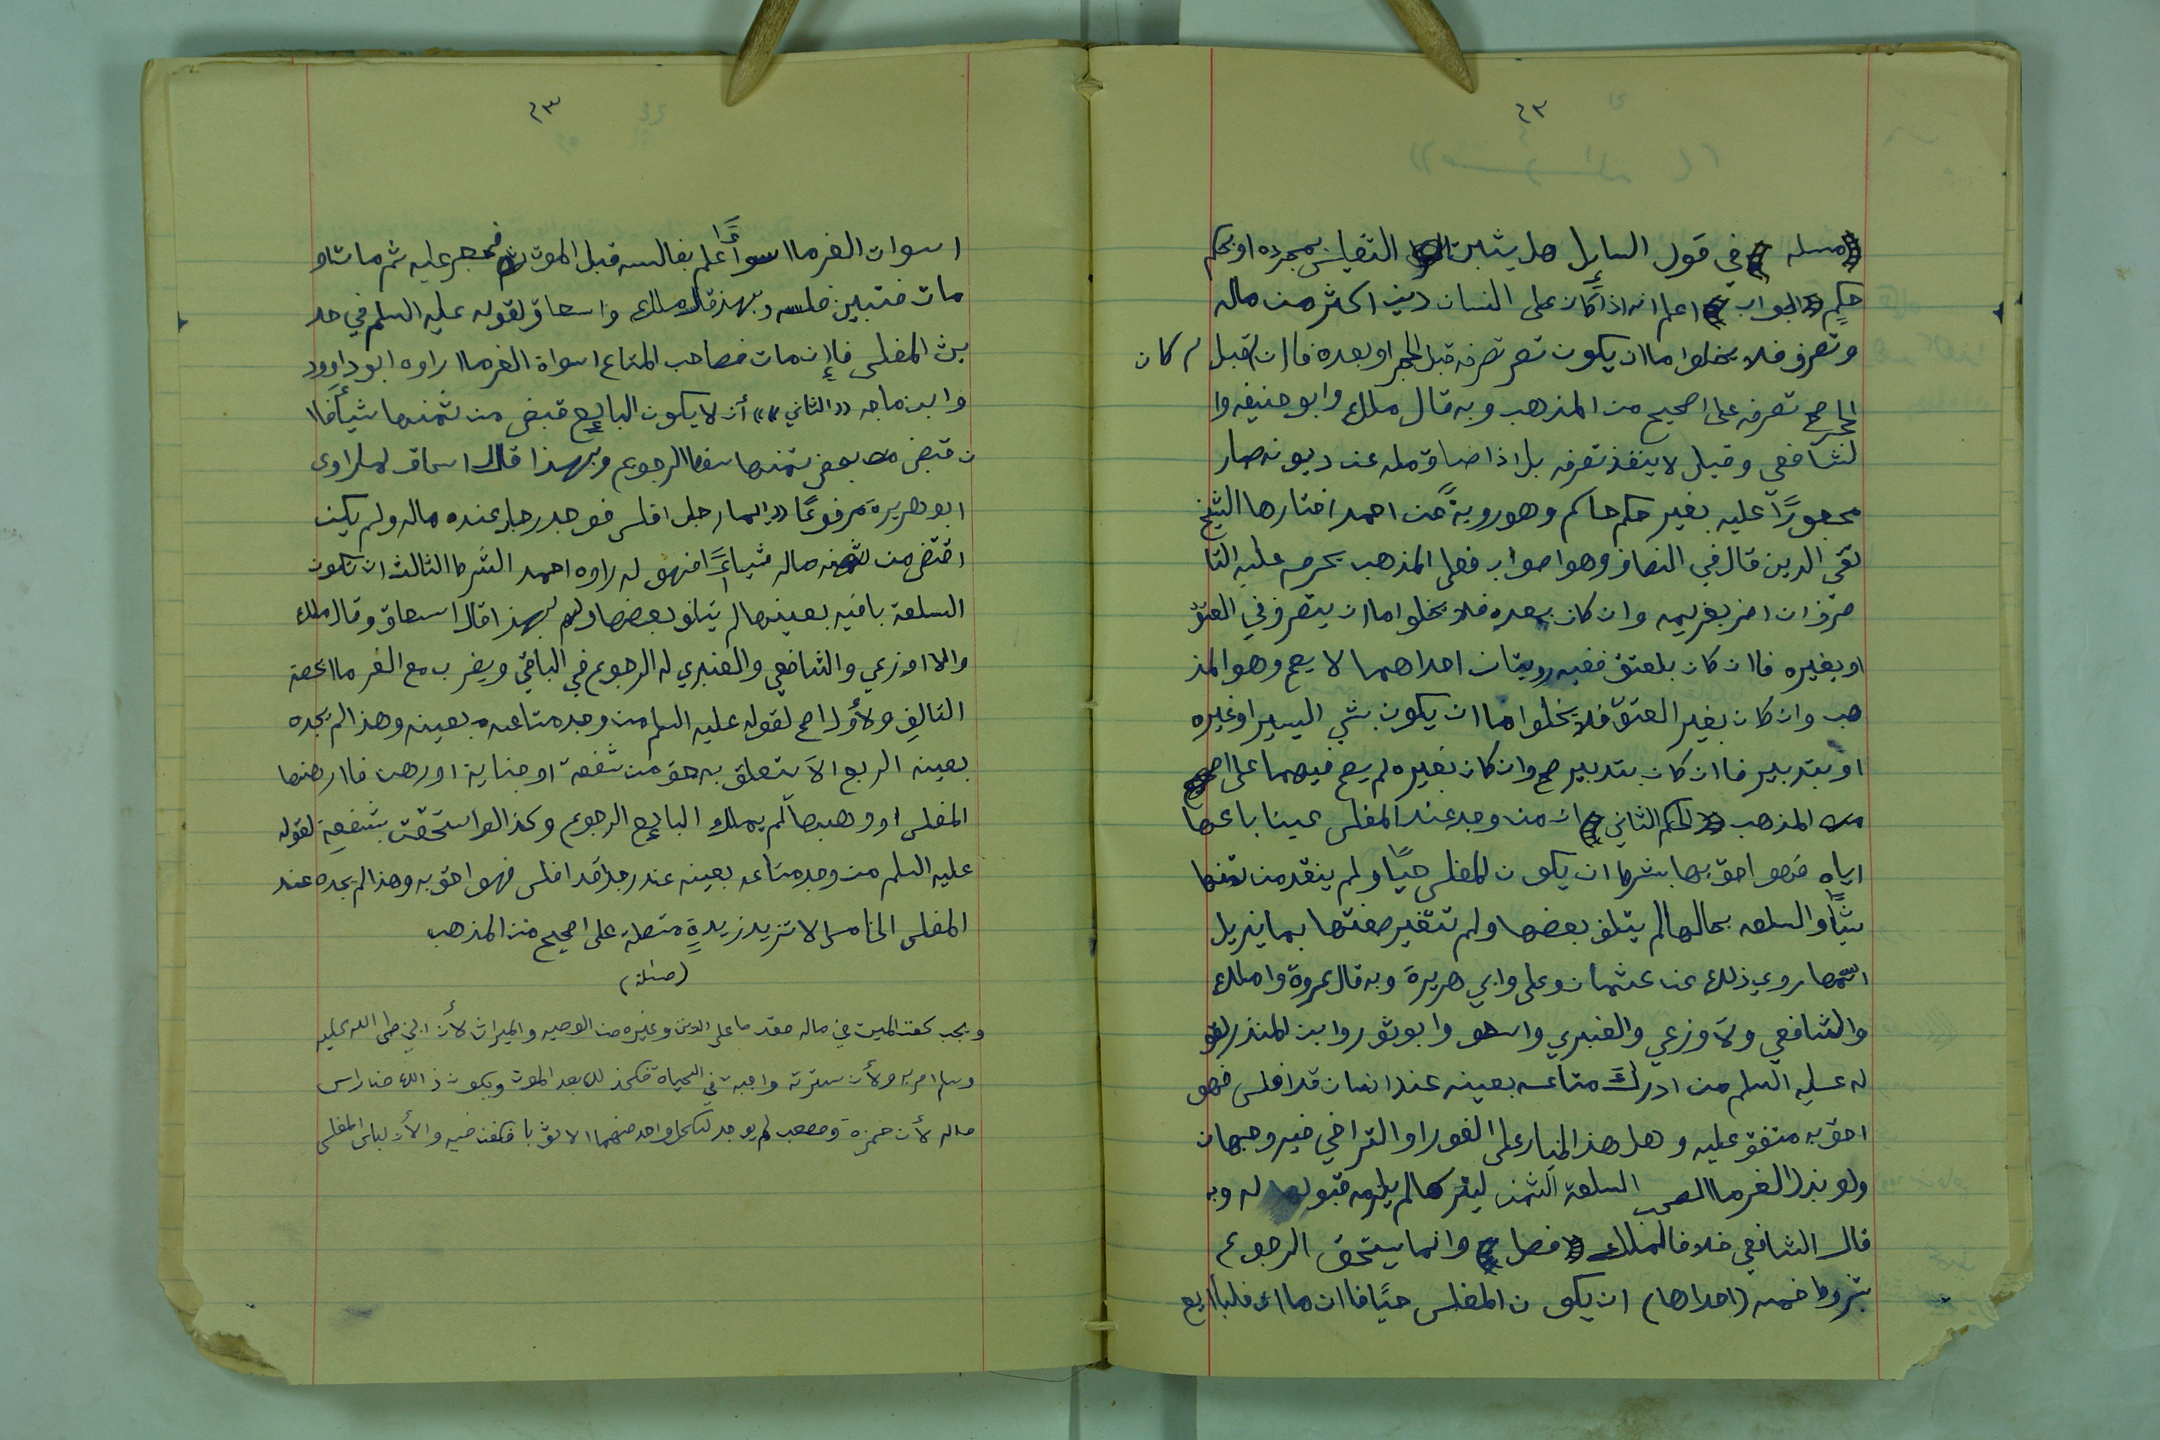 ٤٣
مسله في قول السايل هل يثبت التفليس بمجرده او بحكم
حكمٍ الجواب اعلم انه اذا كان على النسان دين اكثر من ماله
وتصرف فلا يخلوا ما ان يكون تصر تصرفه قبل الحجر او بعده فاان قبل م كان
الحجر صح تصرفه على اصحيح من المذهب وبه قال ملك وابو حنيفه وا
لشافعي وقيل لا ينفذ تصرفه بل اذا ضاق مله عن ديونه صار
محجورًا عليه بغير حكم حاكم وهو رويةً عن احمد اختارها الشيخ
تقي الدين قال في النصاف وهوا صواب فعلى المذهب يحرم عليه التا
صرف ان اضر بغريمه وان كان بعده فلا يخلوا اما ان يتصرف في العتق
او بغيره فاان كان بلعتق ففيه رويتان احداهما لا يصح وهو المذ
هب وان كان بغير العتق فلا يخلوا ما ان يكون بشي اليسير او غيره
او بتدبير فاان كان بتدبير صح وان كان بغيره لم يصح فيهما على اصح
من المذهب الحكم الثاني ان من وجد عند المفلس عينا باعها
اياه فهو احق بها بشرط ان يكون المفلس حيًا ولم ينقد من ثمنها
شيًأ والسلعه بحالها لم يتلف بعضها ولم تتغير صفتها بما يزيل
اسمها روي ذلك عن عثمان وعلي وابي هريرة وبه قال عروة وا ملك
والشافعي ولاوزعي والعنبري واسحق وابو ثور وابن المنذر لقو
له عليه السلم من ادرك متاعه بعينه عند انسان قد افلس فهو
احق به متفق عليه وهل هذا الخيار على الفور او التراخي فيه وجهان
ولو بذل الغرما لصحب السلعة الثمن ليتركها لم يلزمه قبوله له وبه
قال الشافعي خلافا لملك فصل وانما يستحق الرجوع
بشروط خمسه (احداها) ان يكون المفلس حيًا فاان مات فلبايع
٤٣
اسوات الغرما اسواً علم بفالسه قبل الموت فحجر عليه ثم مات او
مات فتبين فلسه وبهذ قال ملك واسحاق لقوله عليه السلم في حد
يث المفلس فاإن مات فصاحب المتاع اسواة الغرما راوه ابو داوود
وابن ماجه «الثاني» أن لا يكون البايع قبض من ثمنها شيأً فاا
ن قبض من بعض ثمنها سقط الرجوع وبهذا قال اسحاق لما راوى
ابو هريرة مرفوعًا «ايما رجل افلس فوجد رجل عنده ماله ولم يكن
اقتضى من ثمنه ماله شياءً افهو له راوه احمد الشرط الثالث ان تكون
السلعة باقيه بعينها لم يتلف بعضها بهذا قال اسحاق وقال ملك
والا اوزعي والشافعي والعنبري له الرجوع في الباقي ويضرب مع الغرما بحصة
التالفِ ولأول اصح لقوله عليه السلم من وجد متاعه بعينه وهذا لم يجده
بعينه الربع الا يتعلق به حق من شفعة او جناية او رهن فاا رهنها
المفلس او وهبها لم يملك البايع الرجوع وكذالو استحقت بشفعة لقوله
عليه السلم من وجد متاعه بعينه عند رجل قد افلس فهوا احق به وهذا لم يجده عند
المفلس الخامس الا تزيد زيدةٍ متصلة على اصحيح من المذهب
(مسئلة)
ويجب كفن الميت في ماله مقدما على الدين وغيره من الوصيه والميراث لأن النبي صلى الله عليه
وسلم امر به ولأن سترته واجبة في الحياة فكذلك بعد الموت ويكون ذالك من راس
ماله لأن حمزة ومصعب لم يوجد لكل واحد منهما الا ثوبا فكفن فيه والأن لباس المفلس